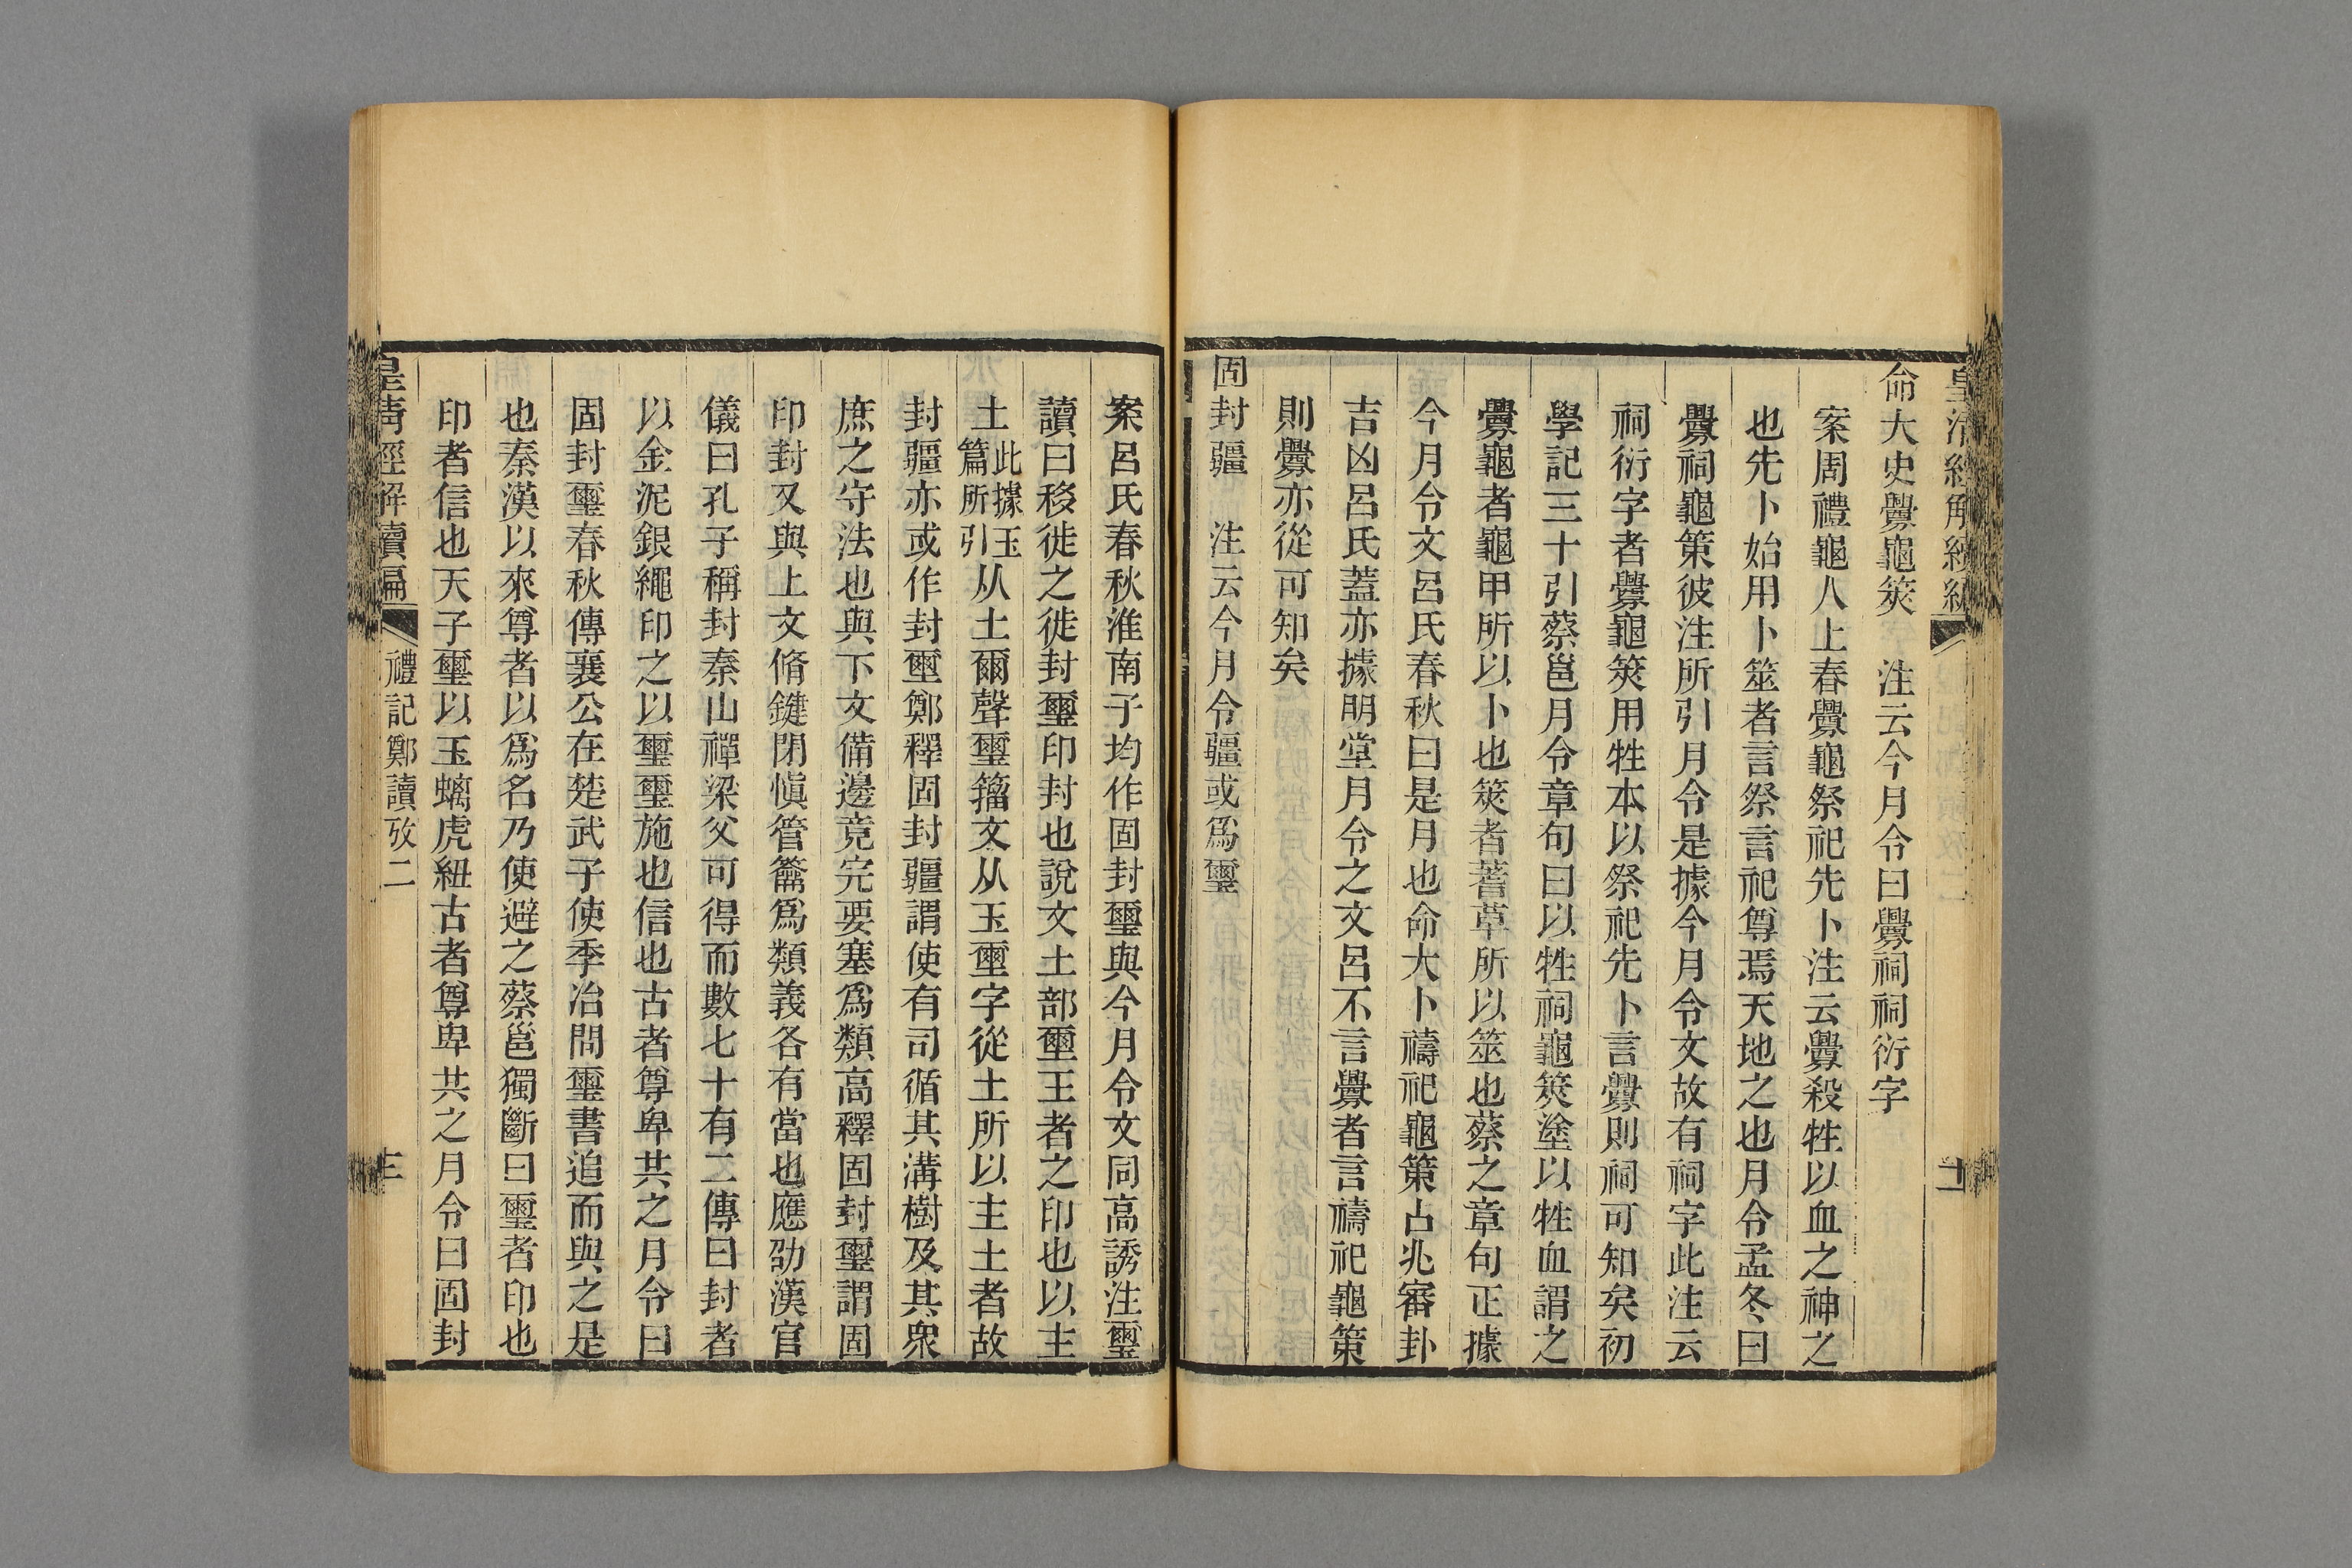 命大史釁龜筴　注云今月令曰釁祠祠衍字
案周禮龜人上春釁龜祭祀先卜注云釁殺牲以血之神之
也先卜始用卜筮者言祭言祀尊焉天地之也月令孟冬曰
釁祠龜策彼注所引月令是據今月令文故有祠字此注云
祠衍字者釁龜筴用牲本以祭祀先卜言釁則祠可知矣初
學記三十引蔡邕月令章句曰以牲祠龜筴塗以牲血謂之
釁龜者龜甲所以卜也筴者蓍草所以筮也蔡之章句正據
今月令文呂氏春秋曰是月也命大卜禱祀龜策占兆審卦
吉凶呂氏蓋亦據明堂月令之文呂不言釁者言禱祀龜策
則釁亦從可知矣
固封疆　注云今月令疆或爲璽
案呂氏春秋淮南子均作固封璽與今月令文同高誘注璽
讀曰移徙之徙封璽印封也說文土部壐王者之印也以主
土此據玉篇所引从土爾聲璽籀文从玉壐字從土所以主土者故
封疆亦或作封壐鄭釋固封疆謂使有司循其溝樹及其衆
庶之守法也與下文備邊竟完要塞爲類高釋固封璽謂固
印封又與上文脩鍵閉愼管籥爲類義各有當也應劭漢官
儀曰孔子稱封泰山禪梁父可得而數七十有二傳曰封者
以金泥銀繩印之以璽璽施也信也古者尊卑共之月令曰
固封璽春秋傳襄公在楚武子使季冶問璽書追而與之是
也秦漢以來尊者以爲名乃使避之蔡邕獨斷曰璽者印也
印者信也天子璽以玉螭虎紐古者尊卑共之月令曰固封
皇淸經解續編　禮記鄭讀攷二